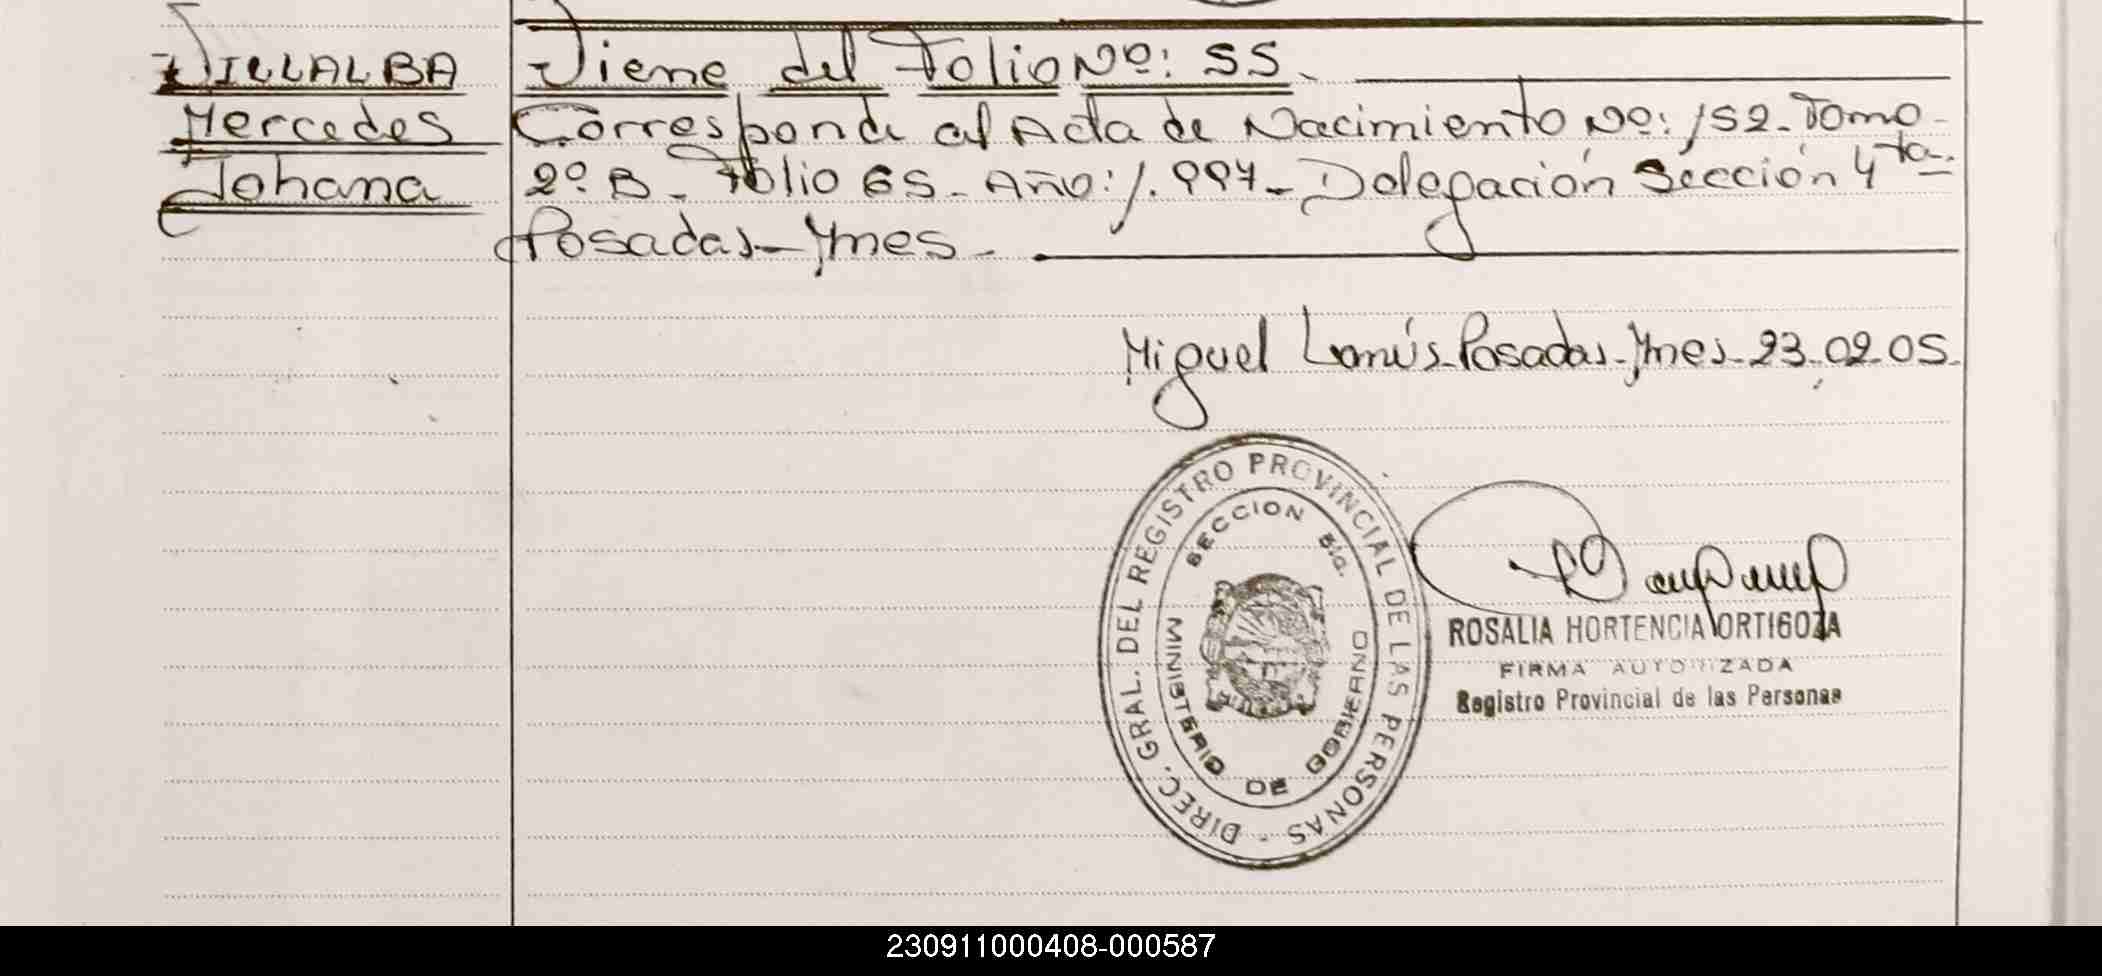 VILLALBA
Mercedes
Johana
Viene del Folio Nº: 55.
Corresponde al Acta de Nacimiento Nº: 152. Tomo
2º B. Folio 65. Año: 1.997. Delegación Sección 4ta.
Posadas. Mnes.
Miguel Lanús. Posadas. Mnes. 23.02.05.
DIREC. GRAL. DEL REGISTRO PROVINCIAL DE LAS PERSONAS -
SECCION
MINISTERIO DE GOBIERNO
ROSALIA HORTENCIA ORTIGOZA
FIRMA AUTORIZADA
Registro Provincial de las Personas
230911000408-000587